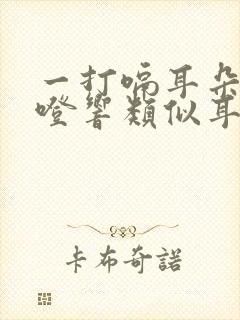 一打嗝耳朵
噔響類似耳
卡布奇諾